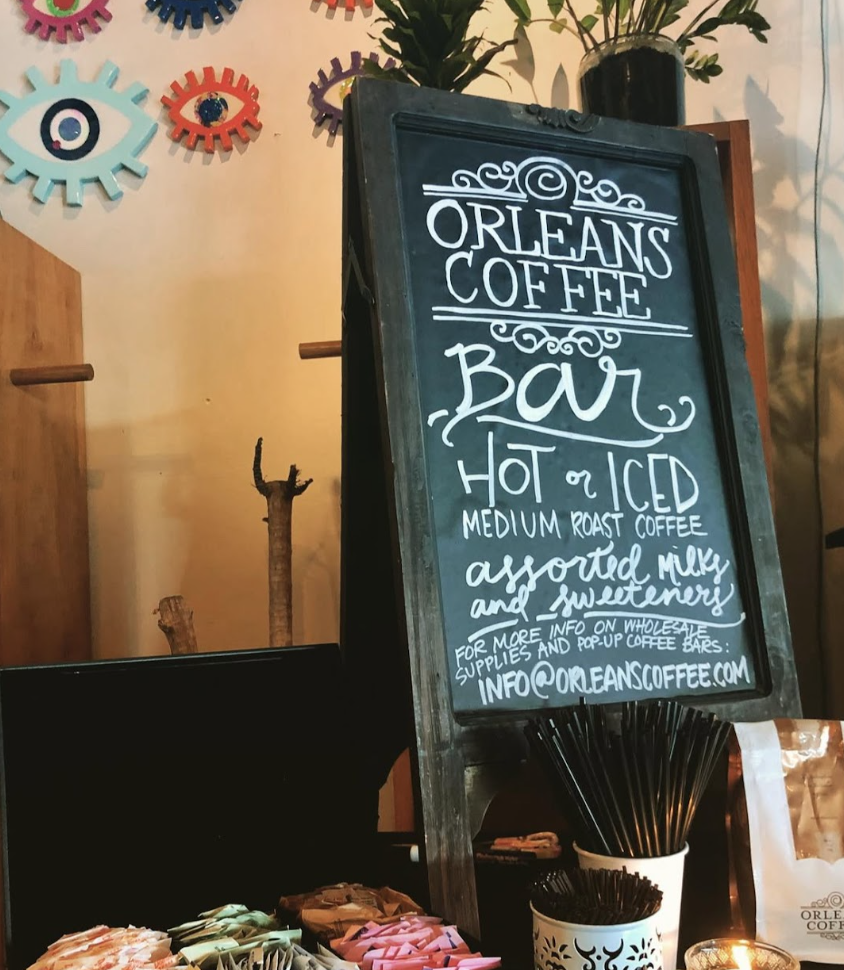 ORLEANS
COFFEE
Bar
HOT or ICED
MEDIUM ROAST COFFEE
assorted MILKS
and sweeteners
FOR MORE INFO ON WHOLESALE
SUPPLIES AND POP-UP COFFEE BARS:
INFO@ORLEANSCOFFEE.COM